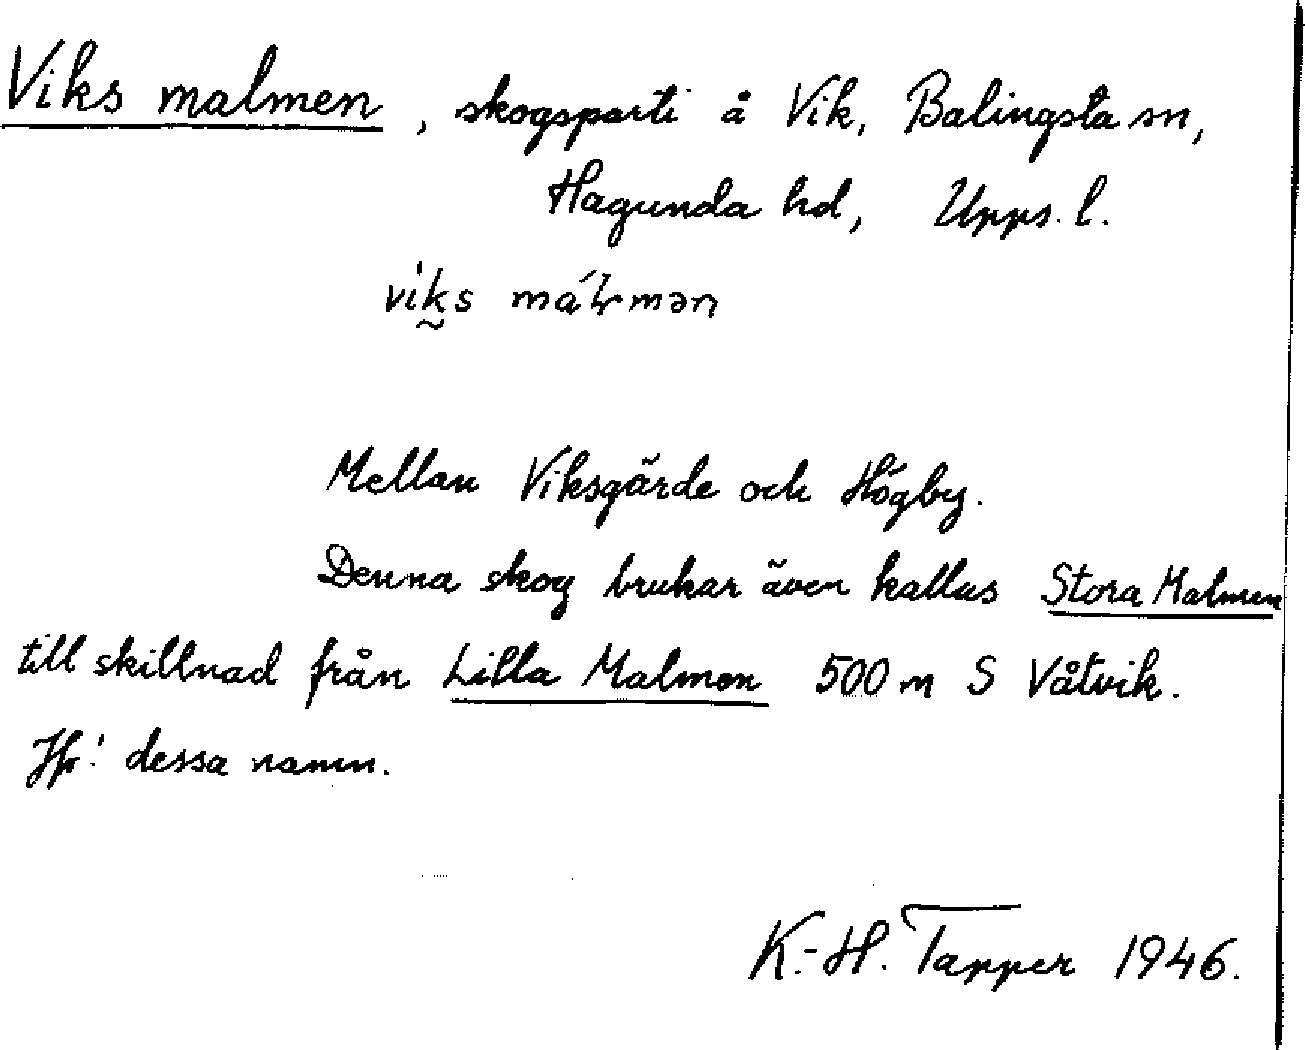 Viks malmen, skogsparti å Vik, Balingsta sn,
Hagunda hd, Upps. l.
viks
Mellan Viksgärde och Högby.
Denna skog brukar även kallas Stora Malmen
till skillnad från Lilla Malmen 500 m S Våtvik.
Jfr! dessa namn.
K.-H. Tapper 1946.